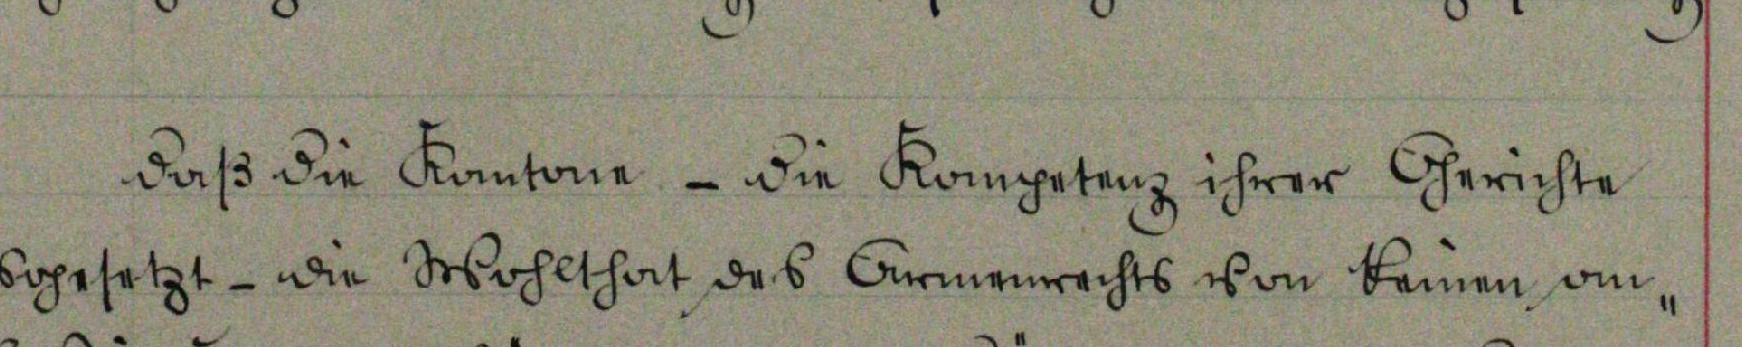 daß die Kantone – die Kompetenz ihrer Gerichte
sogesetzt – die Wohlthat des Armenrechts von keinen an„